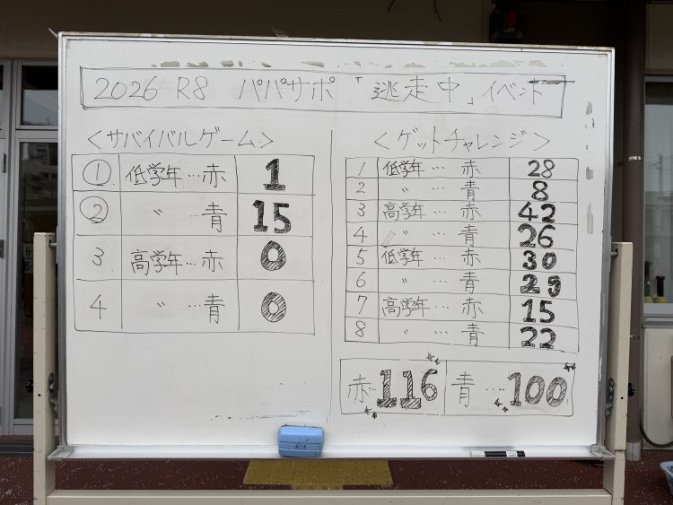 2026 R8 パパサポ 「逃走中」イベント
＜サバイバルゲーム＞
① 低学年…赤 1
② 〃 …青 15
3 高学年…赤 0
4 〃 …青 0
＜ゲットチャレンジ＞
1 低学年…赤 28
2 〃 …青 8
3 高学年…赤 42
4 〃 …青 26
5 低学年…赤 30
6 〃 …青 29
7 高学年…赤 15
8 〃 …青 22
赤…116 青…100